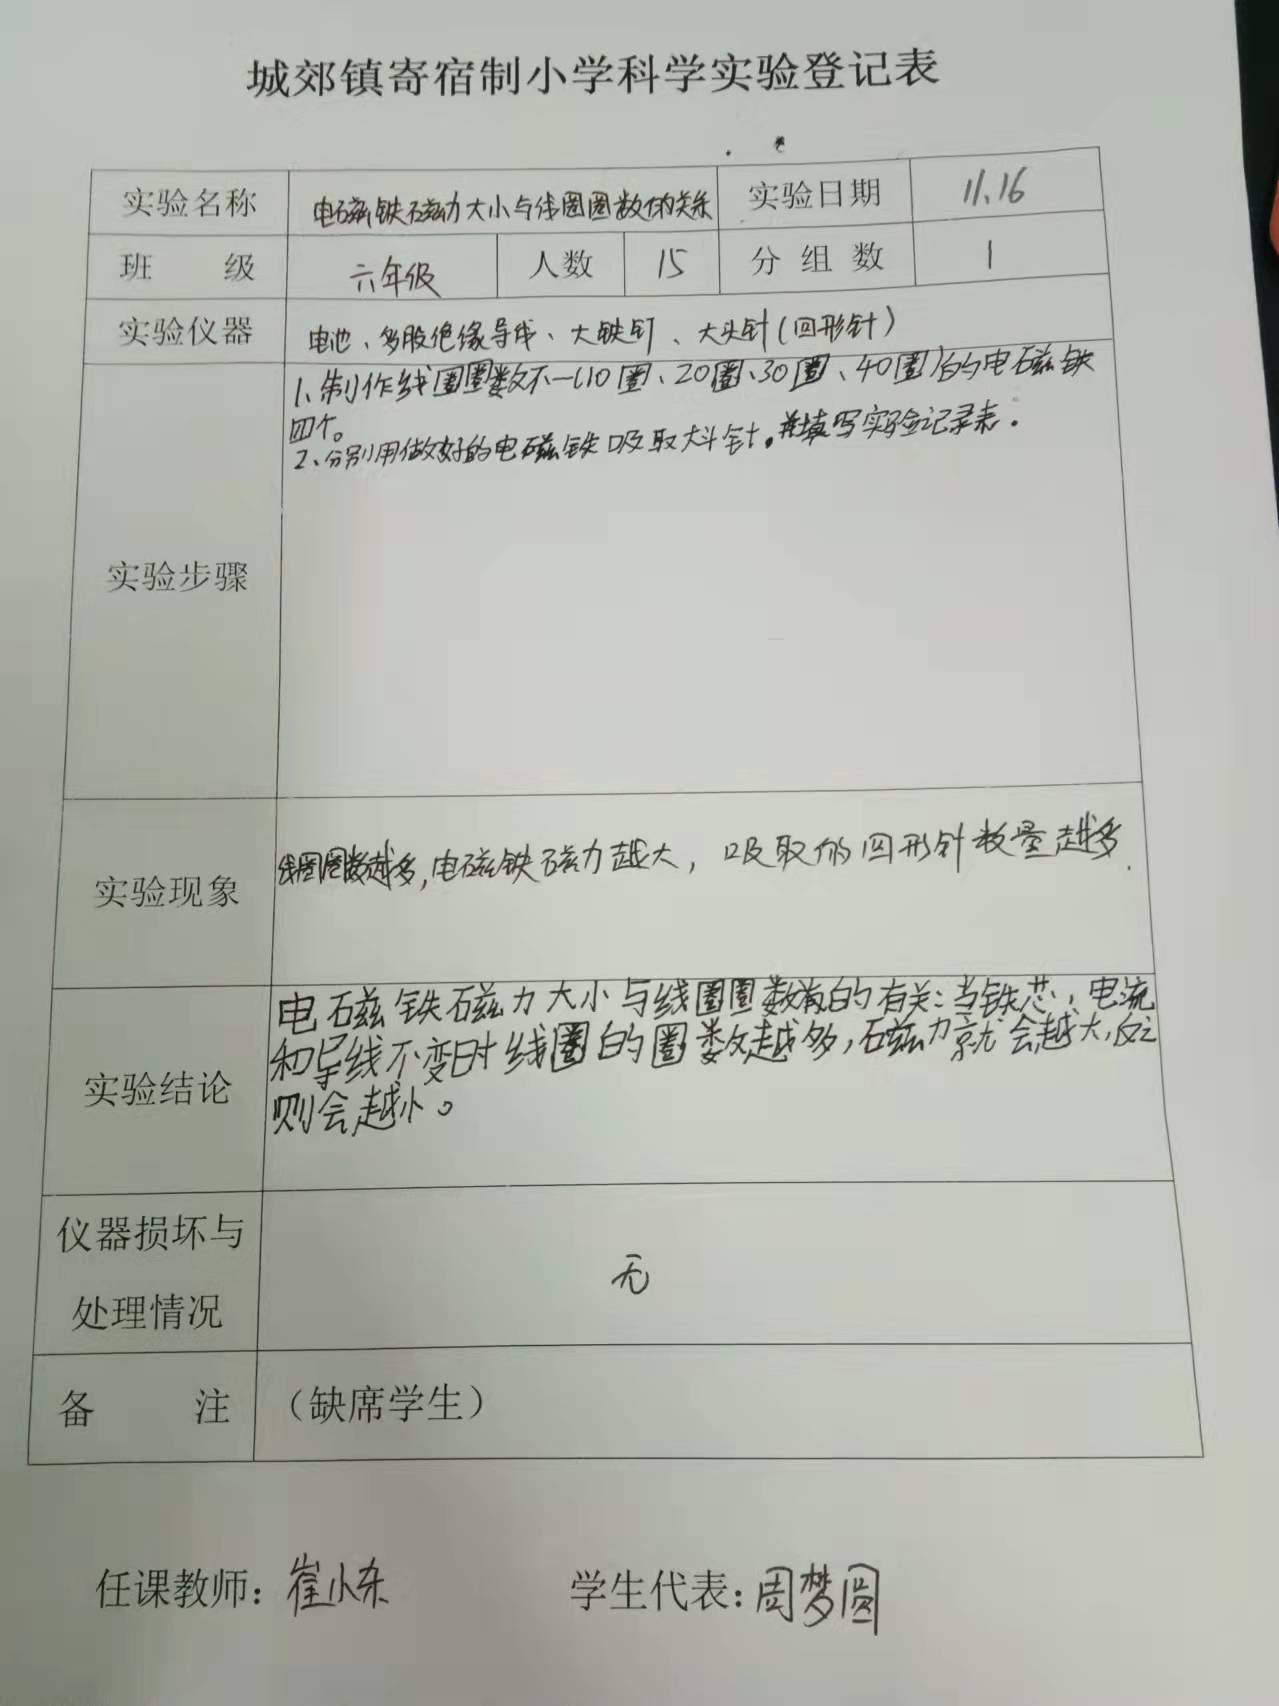 城郊镇寄宿制小学科学实验登记表
实验名称 电磁铁磁力大小与线圈圈数的关系 实验日期 11.16
班 级 六年级 人数 15 分组数 1
实验仪器 电池、多股绝缘导线、大铁钉、大头针(回形针)
1、制作线圈圈数不一(10圈、20圈、30圈、40圈)的电磁铁
四个。
2、分别用做好的电磁铁吸取大头针。并填写实验记录表.
实验步骤
线圈圈数越多,电磁铁磁力越大,吸取的回形针数量越多.
实验现象
电磁铁磁力大小与线圈圈数有的有关:当铁芯,电流
和导线不变时线圈的圈数越多,磁力就会越大,反之
则会越小。
实验结论
仪器损坏与
处理情况
无
备 注 (缺席学生)
任课教师:崔小东 学生代表:周梦圆